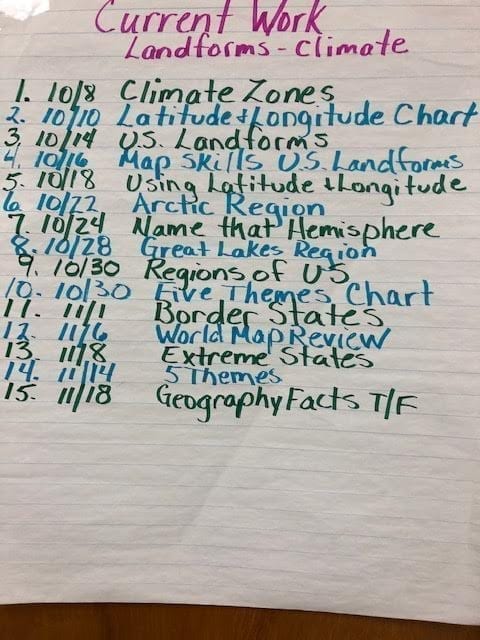 Current Work
Landforms - Climate
1. 10/8 Climate Zones
2. 10/10 Latitude + Longitude Chart
3 10/14 U.S. Landforms
4. 10/16 Map Skills U.S. Landforms
5. 10/18 Using Latitude + Longitude
6 10/22 Arctic Region
7. 10/24 Name that Hemisphere
8. 10/28 Great Lakes Region
9. 10/30 Regions of US
10. 10/30 Five Themes Chart
11. 11/1 Border States
12. 11/6 World Map Review
13. 11/8 Extreme States
14. 11/14 5 Themes
15. 11/18 Geography Facts T/F